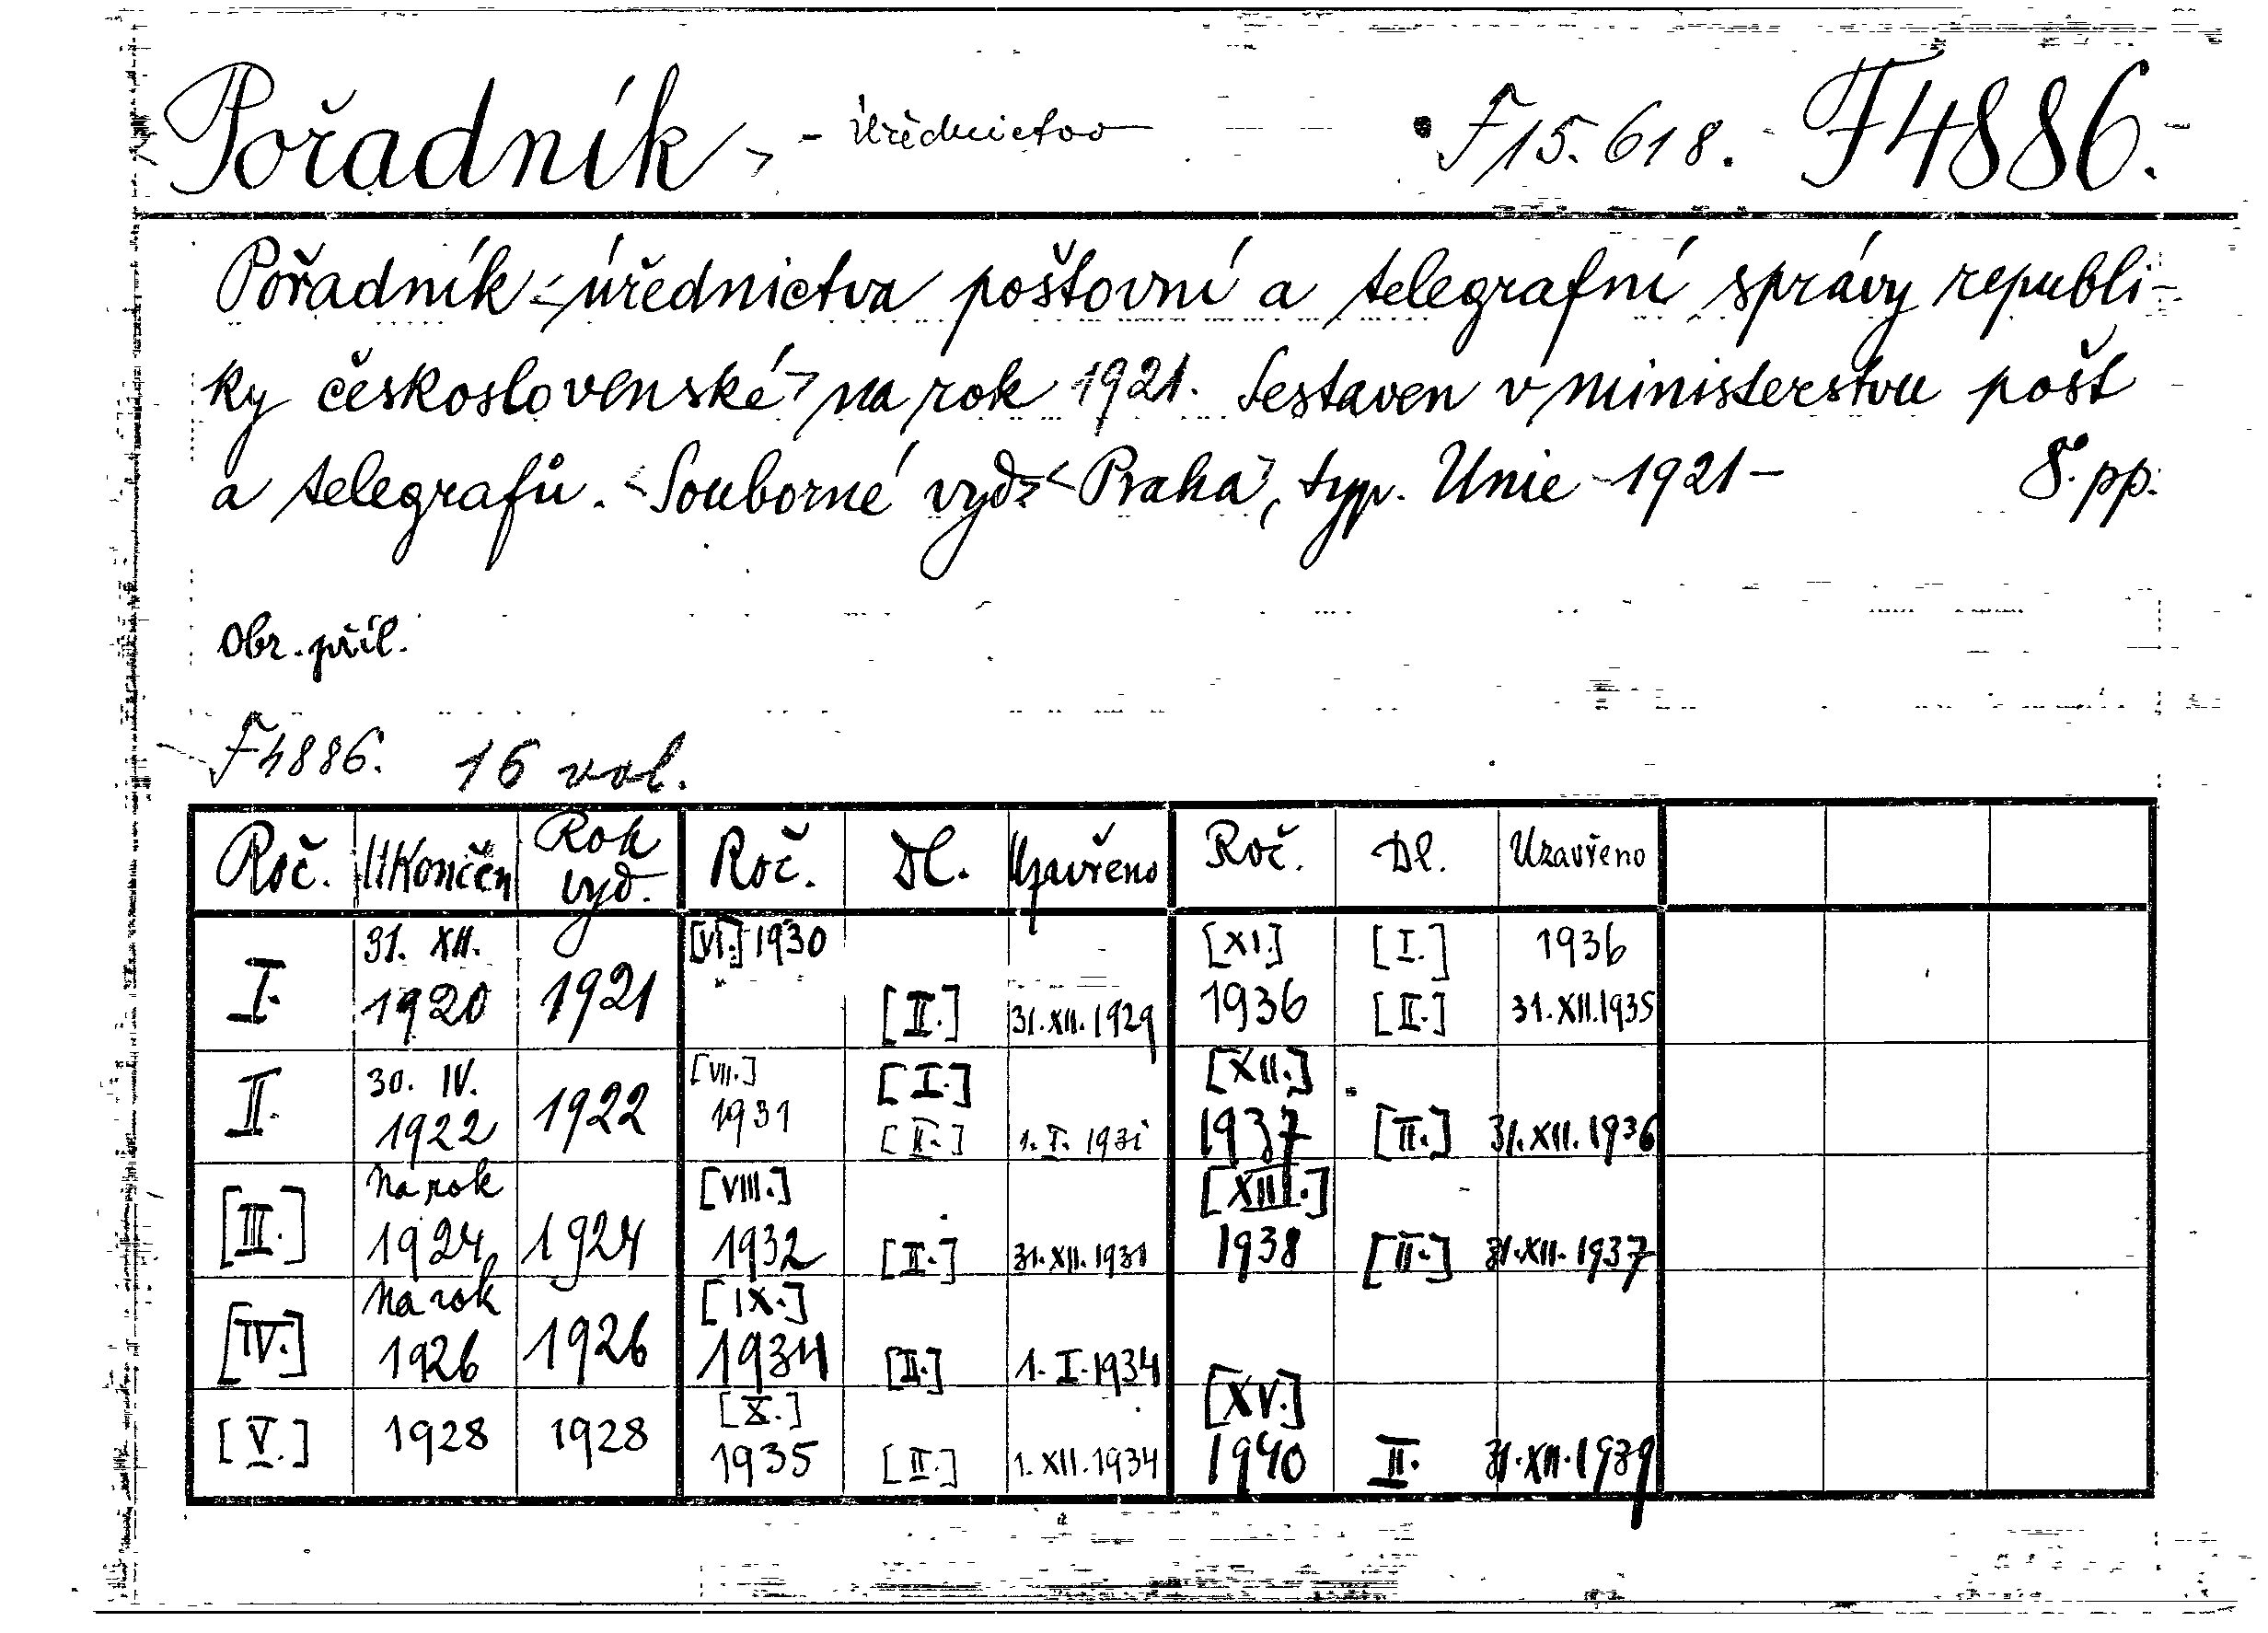 Pořadník, - úřednictvo F 15.618. F 4886.
Pořadník <úřednictva poštovní a telegrafní správy republi-
ky československé> na rok 1921. Sestaven v ministerstvu pošt
a telegrafů. <Souborné vyd.> <Praha>, typ. Unie 1921- 8°. pp.
Obr. příl.
F 4886. 16 vol.
Roč. Ukončen Rok vyd. Roč. Dl. Uzavřeno Roč. Dl. Uzavřeno
I. 31. XII. 1920 1921 [VI.] 1930 [II.] 31.XII.1929 [XI.] 1936 [I.] 1936 [II.] 31.XII.1935
II. 30. IV. 1922 1922 [VII.] 1931 [I.] [II.] 1. I. 1931 [XII.] 1937 [II.] 31.XII.1936
[III.] Na rok 1924 1924 [VIII.] 1932 [II.] 31.XII.1931 [XIII.] 1938 [II.] 31.XII.1937
[IV.] Na rok 1926 1926 [IX.] 1934 [II.] 1. I. 1934
[V.] 1928 1928 [X.] 1935 [II.] 1. XII. 1934 [XV.] 1940 II. 31.XII.1939